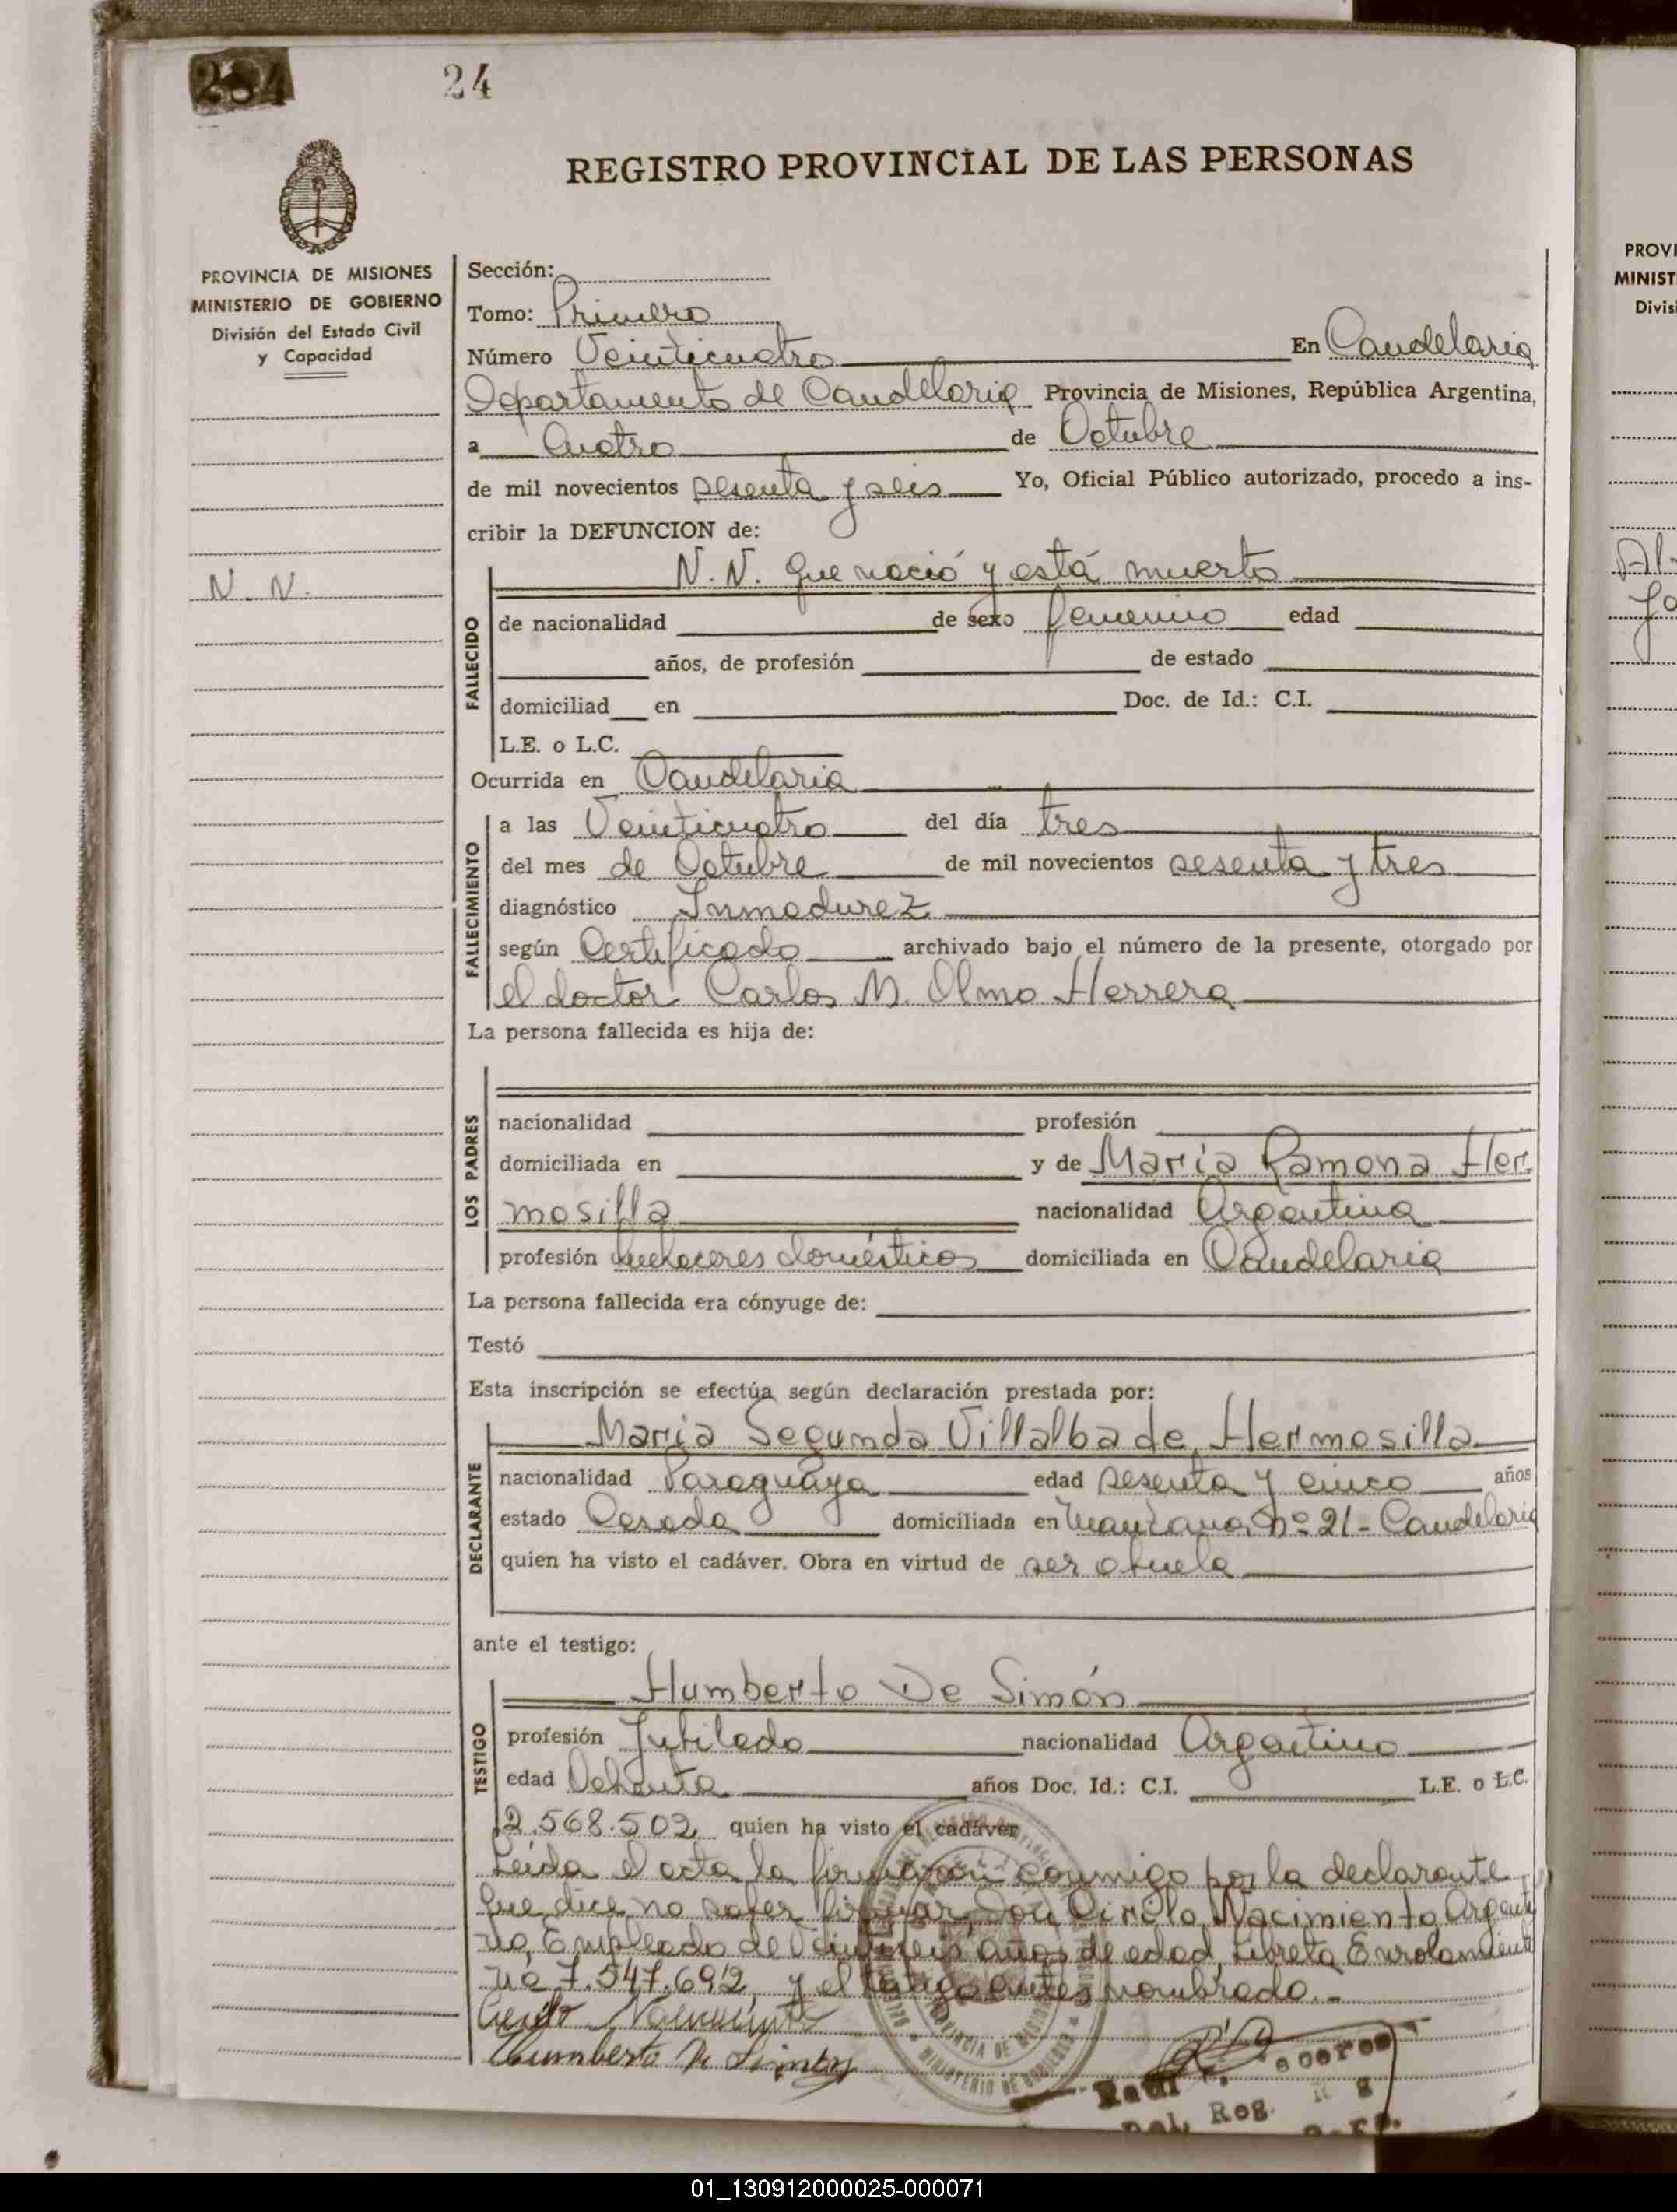 24
REGISTRO PROVINCIAL DE LAS PERSONAS
PROVINCIA DE MISIONES
MINISTERIO DE GOBIERNO
División del Estado Civil
y Capacidad
N. N.
Sección:
Tomo: Primero
Número Veinticuatro En Candelaria
Departamento de Candelaria Provincia de Misiones, República Argentina,
a Cuatro de Octubre
de mil novecientos sesenta y seis Yo, Oficial Público autorizado, procedo a ins-
cribir la DEFUNCION de:
FALLECIDO
N. N. que nació y está muerto
de nacionalidad de sexo femenino edad
años, de profesión de estado
domiciliad en Doc. de Id.: C.I.
L.E. o L.C.
Ocurrida en Candelaria
FALLECIMIENTO
a las Veinticuatro del día tres
del mes de Octubre de mil novecientos sesenta y tres
diagnóstico Inmadurez
según Certificado archivado bajo el número de la presente, otorgado por
el doctor Carlos M. Olmo Herrera
La persona fallecida es hija de:
LOS PADRES
nacionalidad profesión
domiciliada en y de María Ramona Her
mosilla nacionalidad Argentina
profesión quehaceres domésticos domiciliada en Candelaria
La persona fallecida era cónyuge de:
Testó
Esta inscripción se efectúa según declaración prestada por:
DECLARANTE
Maria Segunda Villalba de Hermosilla
nacionalidad Paraguaya edad sesenta y cinco años
estado Casada domiciliada en Manzana nº 21 - Candelaria
quien ha visto el cadáver. Obra en virtud de ser abuela
ante el testigo:
TESTIGO
Humberto De Simón
profesión Jubilado nacionalidad Argentino
edad años Doc. Id.: C.I. L.E. o L.C.
2.568.502 quien ha visto el cadáver
Leida el acta la firmaron conmigo por la declarante
que dice no saber firmar, Don Cirilo Nacimiento Argenti
no, Empleado de Veintiseis años de edad, Libreta Enrolamiento
nº 7.547.692 y el testigo antes nombrado.-
Cirilo Nacimiento
Humberto De Simón
Raul
Del. Reg.
PROVI
MINIST
Divis
01_130912000025-000071